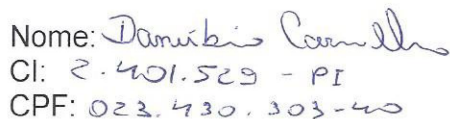 Nome: Danúbio Carvalho
CI: 2.401.529 - PI
CPF: 023.430.303-40